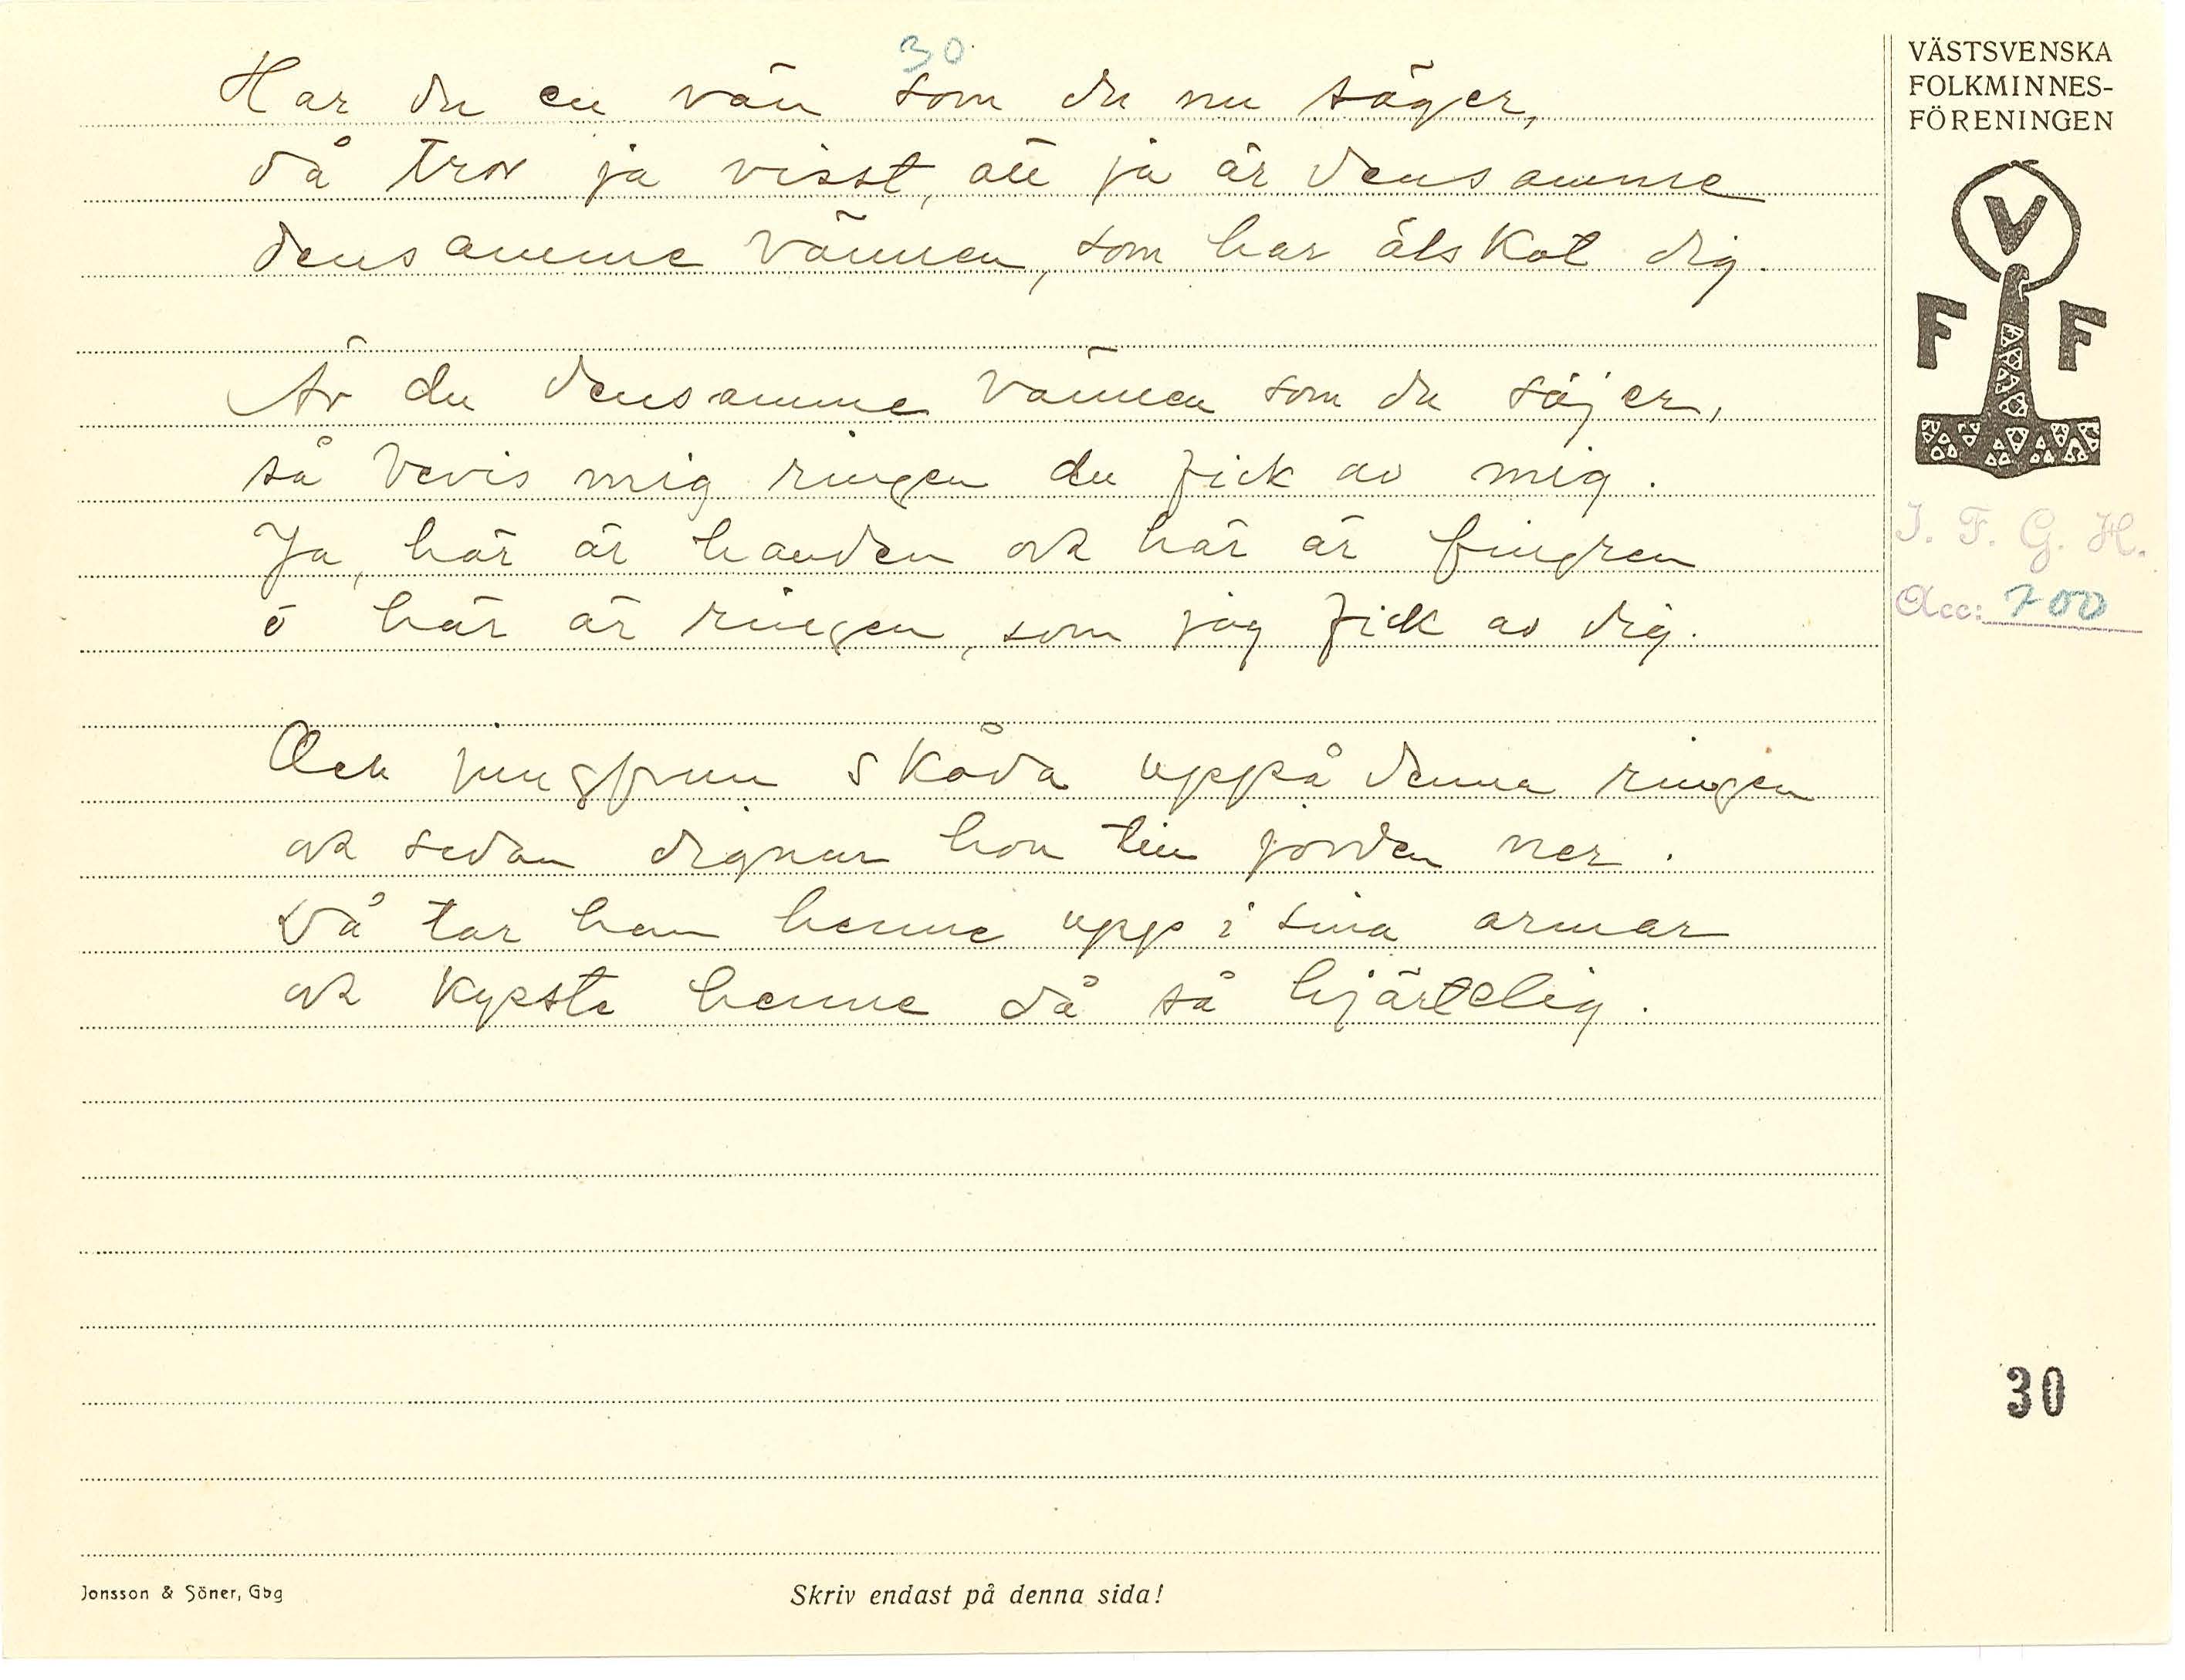 30
Har du en vän som du nu säger,
då tror ja visst, att ja är densamme
densamme vännen, som har älskat dig.
Är du densamme vännen som du säjer,
så bevis mig ringen du fick av mig.
Ja, här är handen ock här är fingren
ó här är ringen, som jag fick av dig.
Och jungfrun skåda uppå denna ringen
ock sedan dignar hon till jorden ner.
Då tar han henne upp i sina armar
ock kysste henne då så hjärtelig.
Jonsson & Söner, Gbg
Skriv endast på denna sida!
VÄSTSVENSKA
FOLKMINNES-
FÖRENINGEN
V
F F
I. F. G. H.
Acc: 700
30